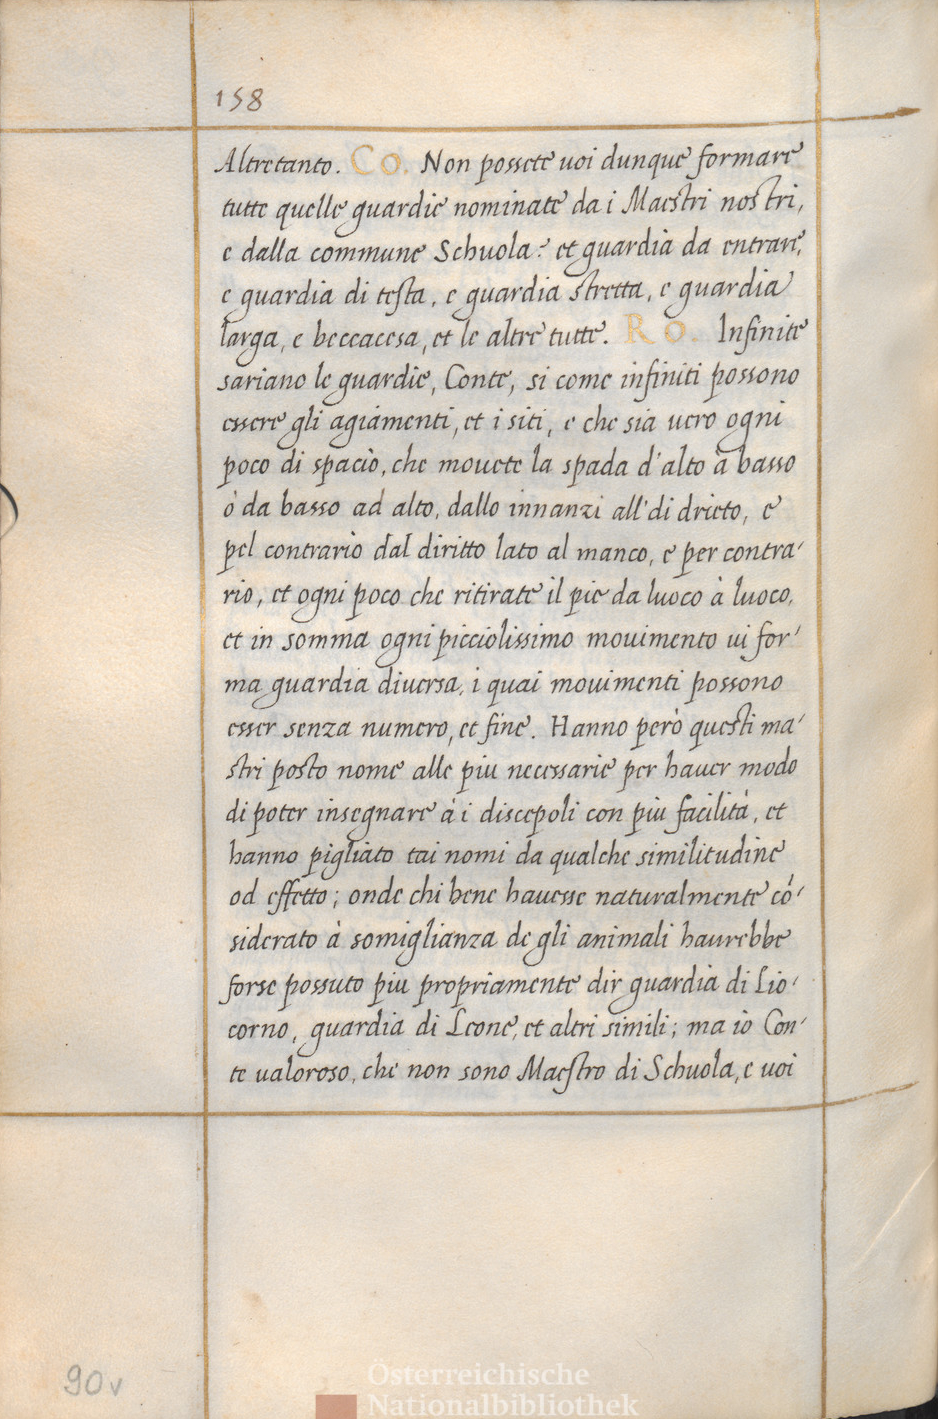 158
Altretanto. CO. Non possete uoi dunque formare
tutte quelle guardie nominate da i Maestri nostri,
e dalla commune Schuola? et guardia da entrare,
e guardia di testa, e guardia stretta, e guardia
larga, e beccacesa, et le altre tutte. RO. Infinite
sariano le guardie, Conte, si come infiniti possono
essere gli agiamenti, et i siti, e che sia uero ogni
poco di spacio, che mouete la spada d'alto à basso
ò da basso ad alto, dallo innanzi all' di drieto, e
pel contrario dal diritto lato al manco, e per contra-
rio, et ogni poco che ritirate il pie da luoco à luoco,
et in somma ogni picciolissimo mouimento ui for-
ma guardia diuersa, i quai mouimenti possono
esser senza numero, et fine. Hanno però questi ma-
stri posto nome alle piu necessarie per hauer modo
di poter insegnare à i discepoli con più facilità, et
hanno pigliato tai nomi da qualche similitudine
od effetto; onde chi bene hauesse naturalmente cō-
siderato à somiglianza de gli animali haurebbe
forse possuto piu propriamente dir guardia di Lio-
corno, guardia di Leone, et altri simili; ma io Con-
te ualoroso, che non sono Maestro di Schuola, e uoi
90v
Österreichische
Nationalbibliothek